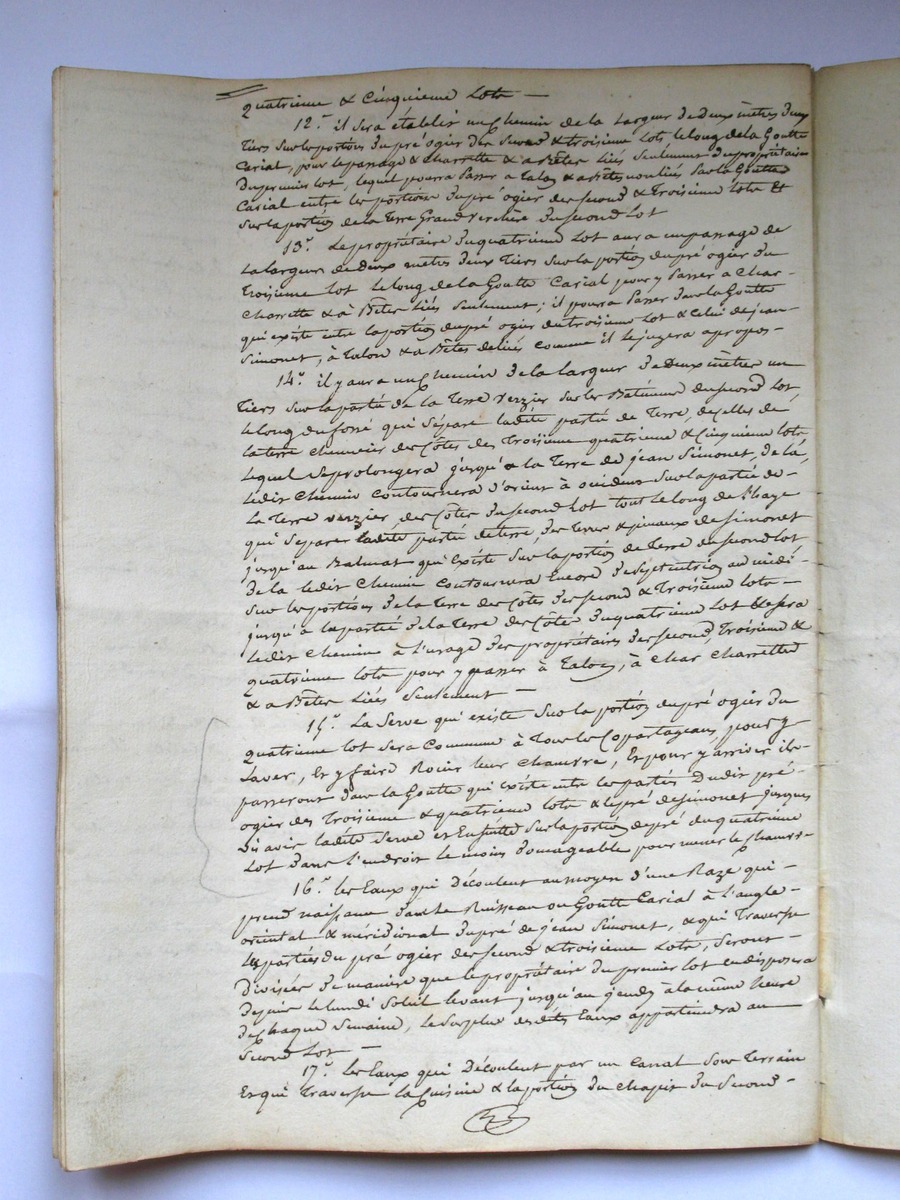 quatrieme & Cinquieme Lots —
12.° il sera établir un Chemin de la Largeur de deux mètres deux
Tiers sur les portions du pré ogier des second & troisieme Lots, le long de la Goutte
Carial, pour le passage & Charrette & a Bêtes Liés seulement du propriétaire
du premier lot, lequel pourra passer a Talon & a Bêtes non liées sur la Goutte
Carial entre les portions du pré ogier des second & Troisieme lots &
sur la portion de la Terre Grand verchere du second Lot
13.° Le propriétaire du quatrieme Lot aura un passage de
La largeur de deux mètres deux Tiers sur la portion du pré ogier du
Troisieme lot le long de la Goutte Carial pour y passer a Char-
Charrette & à Bêtes liés seulement; il pourra passer dans la Goutte
qui existe entre la portion du pré ogier du troisieme Lot & Celui de jean-
Simonet, à Talon & a Bêtes deliés comme il le jugera a propos-
14.° il y aura un Chemin de la largeur de deux mètres un
Tiers sur la partie de la Terre verzier sur les Batimens du second Lot
le long du fossé qui sépare ladite partie de Terre, de celles de
la terre des Côtes des Troisieme quatrieme & Cinquieme lots
Lequel se prolongera jusqu'a la Terre de jean Simonet, de là,
Ledit Chemin contournera d'orient à occident sur la partie de-
La Terre verzier, des Côtes du second Lot tout le long de
qui separe ladite partie de terre, des Terres & de Simonet
jusqu'au qui existe sur la portion de Terre du second lot
de la ledit Chemin contournera Encore de septentrion au midi-
sur les portions de la Terre des Côtes des second & Troisieme lots-
jusqu'à la partie de la Terre des Côtes du quatrieme Lot & sera
Ledit Chemin à l'usage des propriétaires des second, Troisieme &
quatrieme lots pour y passer à Talon, à Char Charrettes
& a Bêtes Liés seulement —
15.° La Serve qui existe sur la portion du pré ogier du
quatrieme lot sera Commune à Tous les Copartageans, pour y
Laver, & y faire Rouir leur Chanvre, Et pour y arriver ils-
passeront dans la Goutte qui existe entre les parties Dudit pré-
ogier des Troisieme & quatrieme lots & le pré de Simonet jusques
Vis avis ladite Serve et Ensuitte sur la portion de pré du quatrieme
Lot dans l'endroit le moins domageable pour mener le Chanvre-
16.° les Eaux qui Découlent au moyen d'une Raze qui-
prend naissance dans le Ruisseau ou Goutte Carial à l'angle-
oriental & méridional du pré de jean Simonet, & qui Traverse
Les parties du pré ogier des second & troisieme Lots, seront-
Divisées de maniere que le propriétaire du premier lot en disposera
depuis le lundi Soleil levant jusqu'au jeudi à la même heure
de Chaque semaine, le surplus desdites Eaux appartiendra au-
second Lot —
17.° les Eaux qui Découlent par un Canal sous Terrain
Et qui Traverse la Cuisine & la portion du Chapit du second-